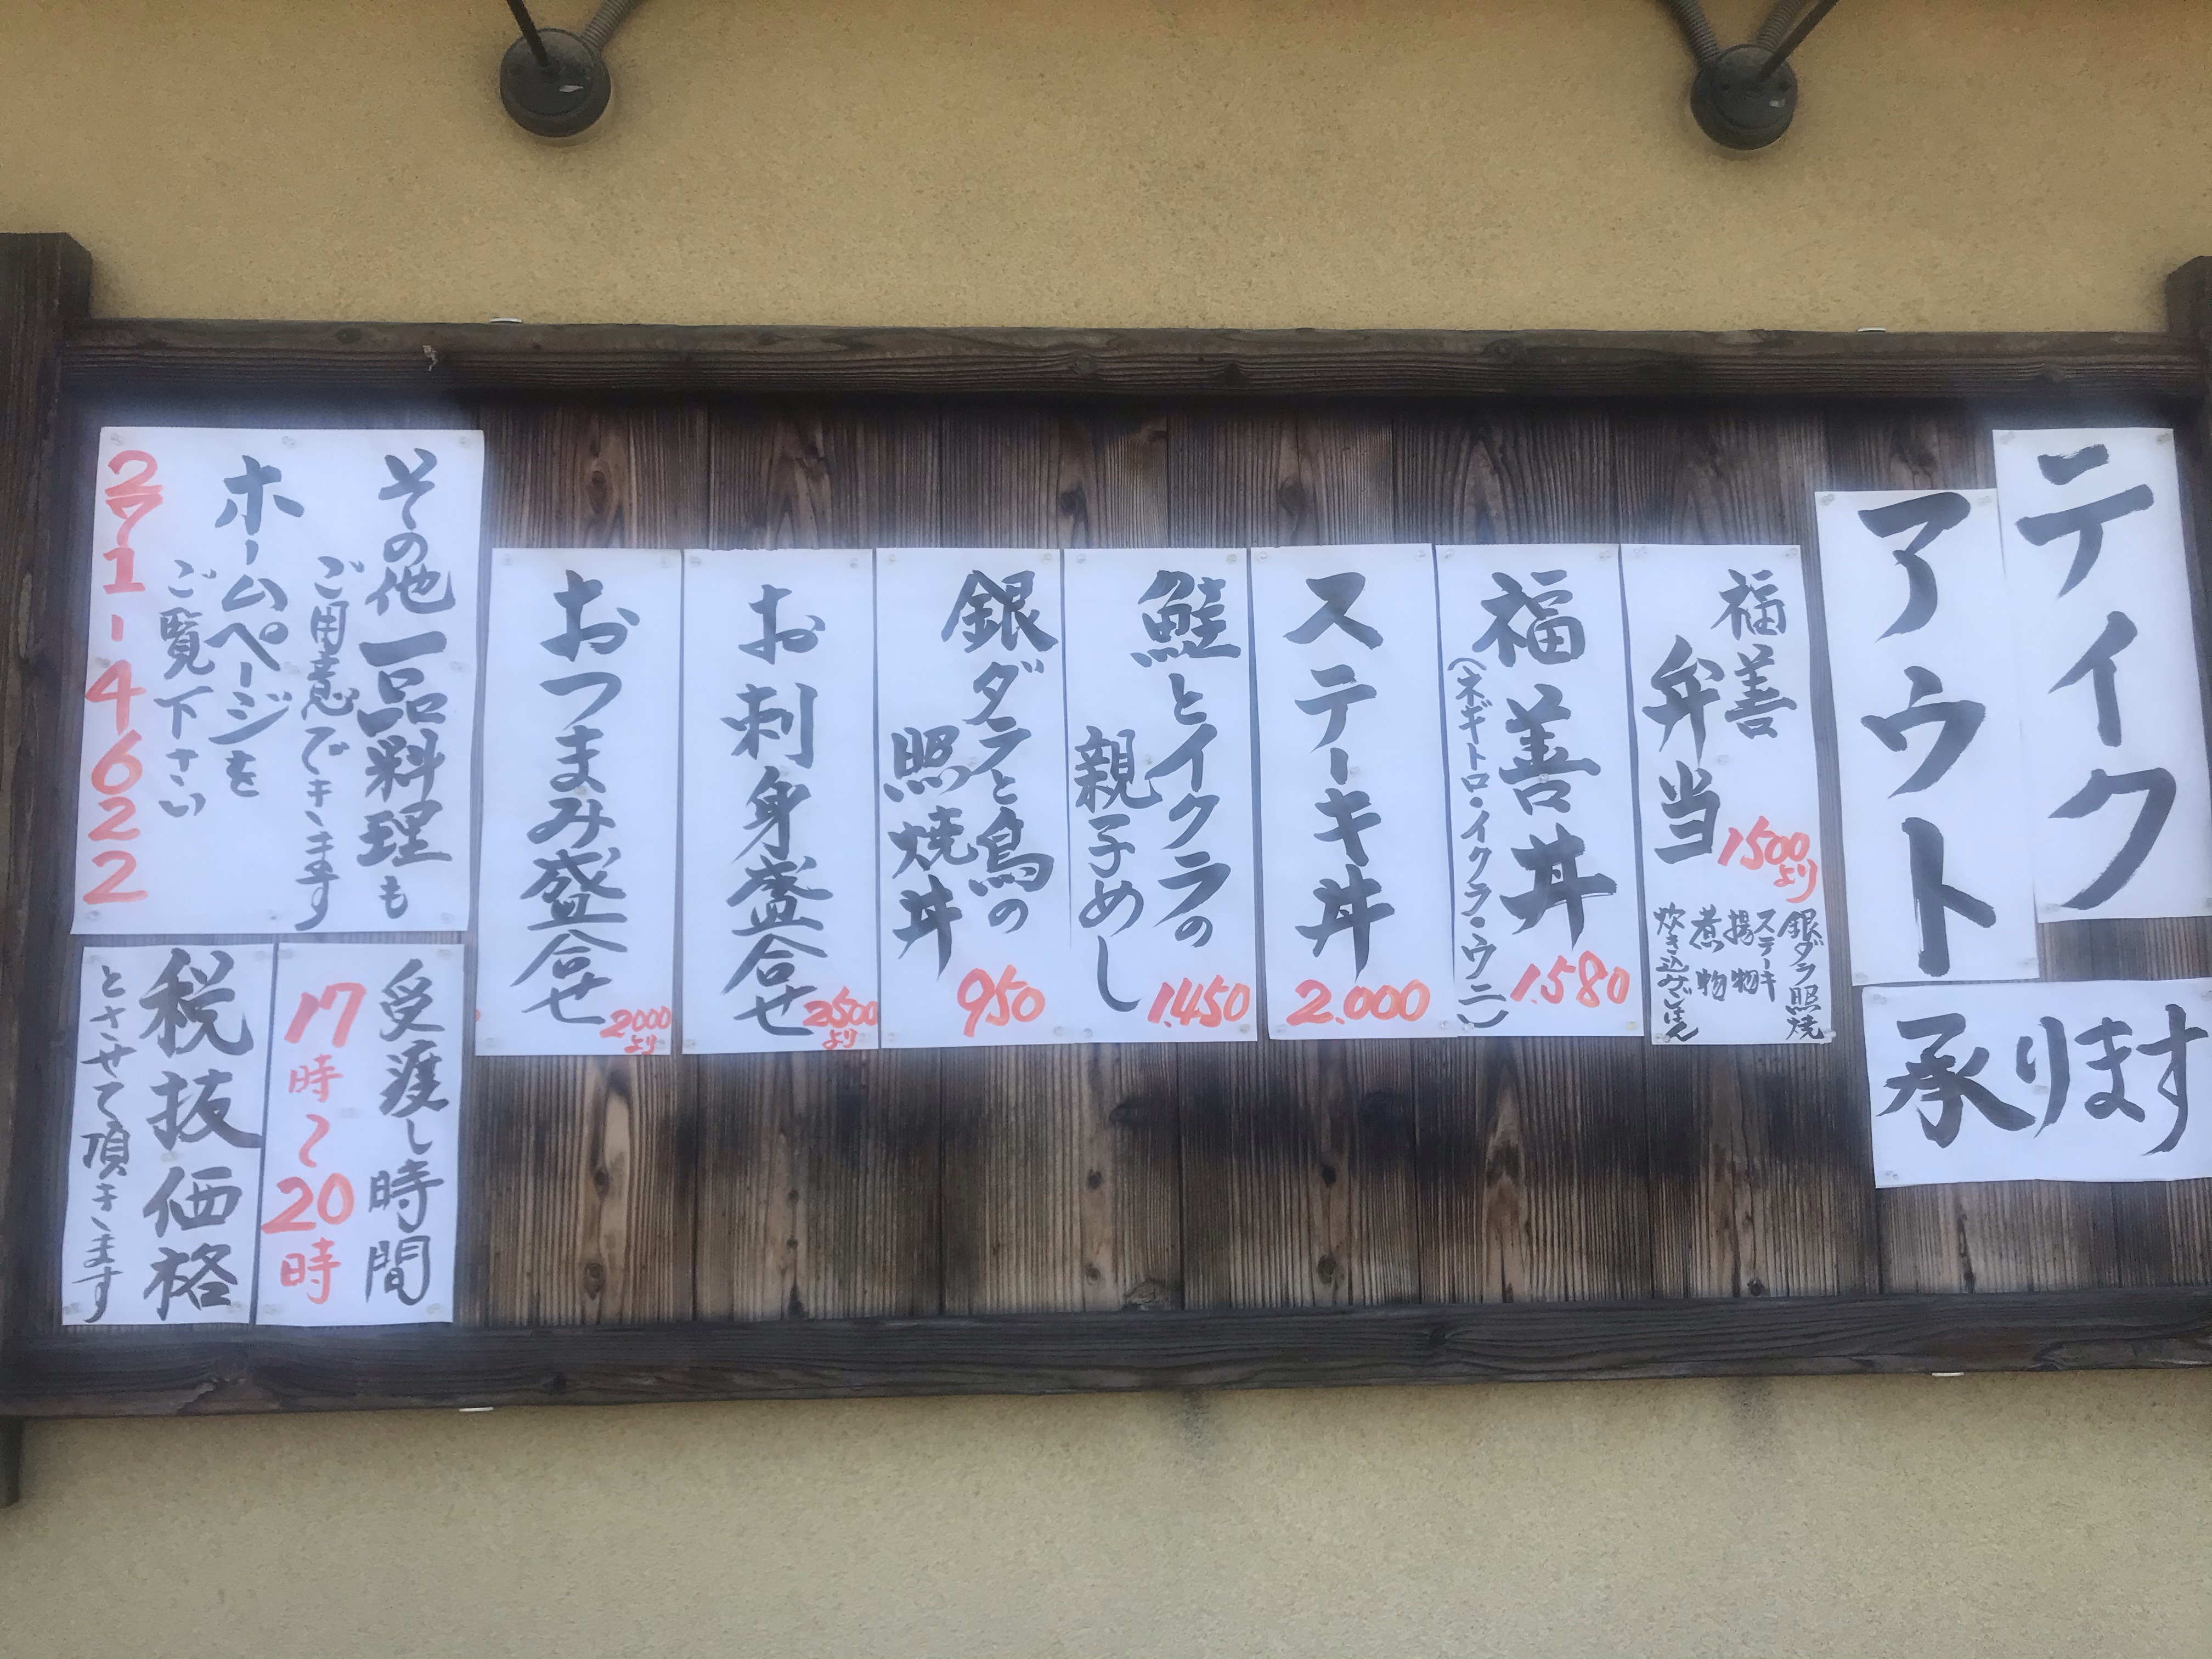 テイク
アウト
承ります
福善
弁当
1500より
銀ダラ照焼
ステーキ
揚物
煮物
炊き込みごはん
福善丼
(ネギトロ・イクラ・ウニ)
1.580
ステーキ丼
2.000
鮭とイクラの
親子めし
1.450
銀ダラと鳥の
照焼丼
950
お刺身盛合せ
2500より
おつまみ盛合せ
2000より
その他一品料理も
ご用意できます
ホームページを
ご覧下さい
271-4622
受渡し時間
17時〜20時
税抜価格
とさせて頂きます